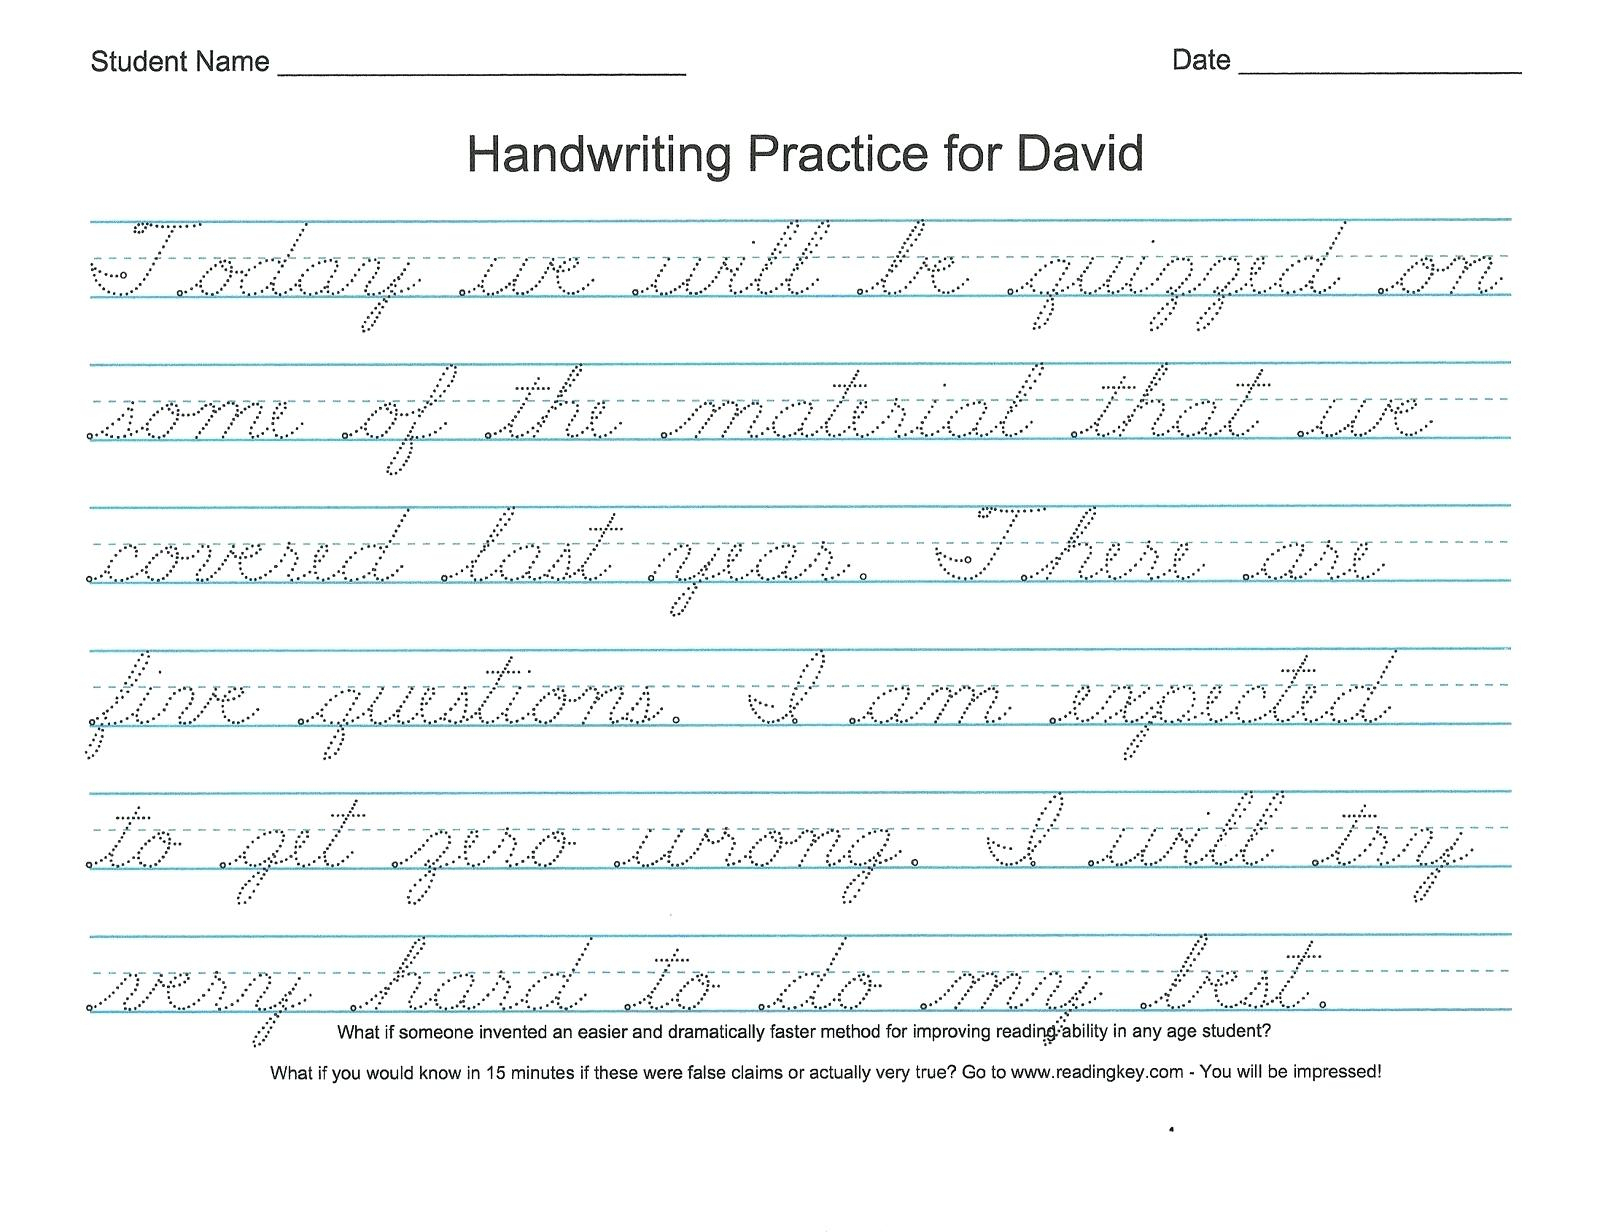 Student Name Date
Handwriting Practice for David
Today we will be quizzed on
some of the material that we
covered last year. There are
five questions. I am expected
to get zero wrong. I will try
very hard to do my best.
What if someone invented an easier and dramatically faster method for improving reading ability in any age student?
What if you would know in 15 minutes if these were false claims or actually very true? Go to www.readingkey.com - You will be impressed!